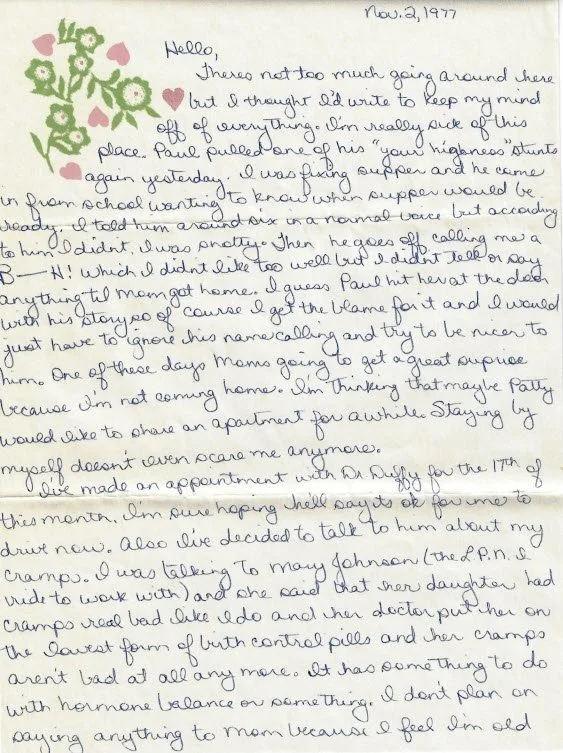 Nov. 2, 1977
Hello,
Theres not too much going around here
but I thought I'd write to keep my mind
off of everything. I'm really sick of this
place. Paul pulled one of his "your highness" stunts
again yesterday. I was fixing supper and he came
in from school wanting to know when supper would be
ready. I told him around six in a normal voice but according
to him I didn't, I was snotty. Then he goes off calling me a
B––H! Which I didn't like too well but I didn't tell or say
anything til Mom got home. I guess Paul hit her at the door
with his story so of course I get the blame for it and I would
just have to ignore his name calling and try to be nicer to
him. One of these days Moms going to get a great suprise
because I'm not coming home. I'm thinking that maybe Patty
would like to share an apartment for a while. Staying by
myself doesn't even scare me anymore.
I've made an appointment with Dr Duffy for the 17th of
this month. I'm sure hoping he'll say its ok for me to
drive now. Also I've decided to talk to him about my
cramps. I was talking to Mary Johnson (the L.P.N. I
ride to work with) and she said that her daughter had
cramps real bad like I do and her doctor put her on
the lowest form of birth control pills and her cramps
aren't bad at all any more. It has something to do
with hormone balance or something. I don't plan on
saying anything to Mom because I feel I'm old